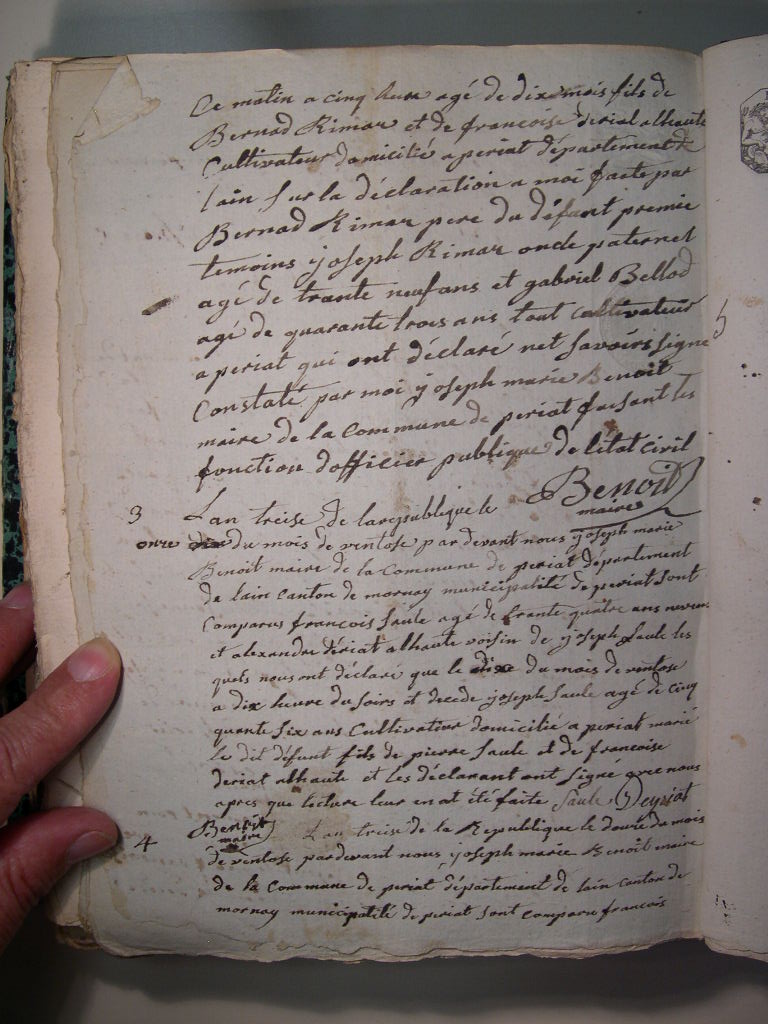 Ce matin a cinq hure agé de dix mois fils de
Bernad Rimar et de francoise deriat alhaute
Cultivateur domicilié a periat département de
lain sur la déclaration a moi faite par
Bernad Rimar pere du défunt premie
temoins yjoseph Rimar oncle paternel
agé de trante neufans et gabriel Bellod
agé de quarante trois ans tout cultivateur
a periat qui ont déclaré net savoirs signe
Constaté par moi yjoseph marie Benoit
maire de la Commune de periat faisant les
fonction dofficier publique de létat civil
Benoit
maire
3 Lan treise de larepublique le
onze du mois de ventose par devant nous yjoseph marie
Benoit maire de la Commune de periat département
de lain canton de mornay municipalité de periat sont
Comparus françois Saule agé de trante quatre ans
et alexandre dériat alhaute voisin de yjoseph Saule les
quels nous ont déclaré que le dixe du mois de ventose
a dix heure du soirs et decede yjoseph Saule agé de cinq
quante six ans Cultivateur domicilié a periat marié
le dit défunt fils de pierre Saule et de francoise
deriat alhaute et les déclarant ont signé avec nous
apres que lecture leur en at été faite Saule Deyriat
Benoit
maire
4 Lan treise de la Republique le douze du mois
de ventose par devant nous yjoseph marie Benoit maire
de la Commune de periat département de lain canton de
mornay municipalité de periat sont comparu francois